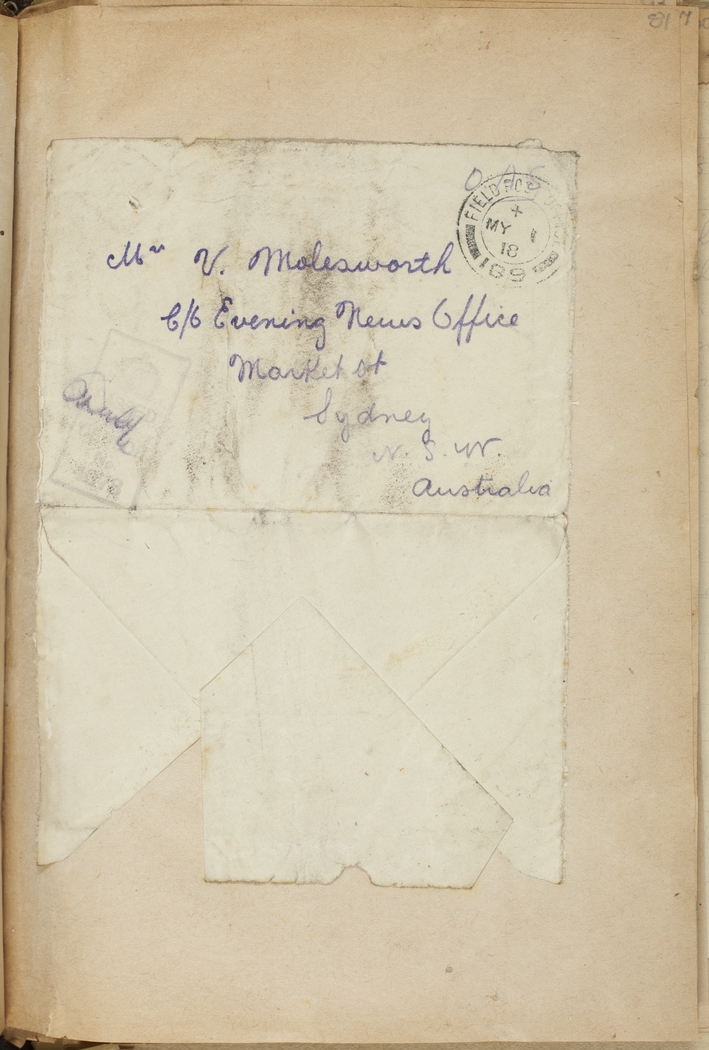 O.A.S
FIELD POST OFFICE
MY
18
189
Mr V. Molesworth
C/o Evening News Office
Market St
Sydney
N.S.W.
Australia